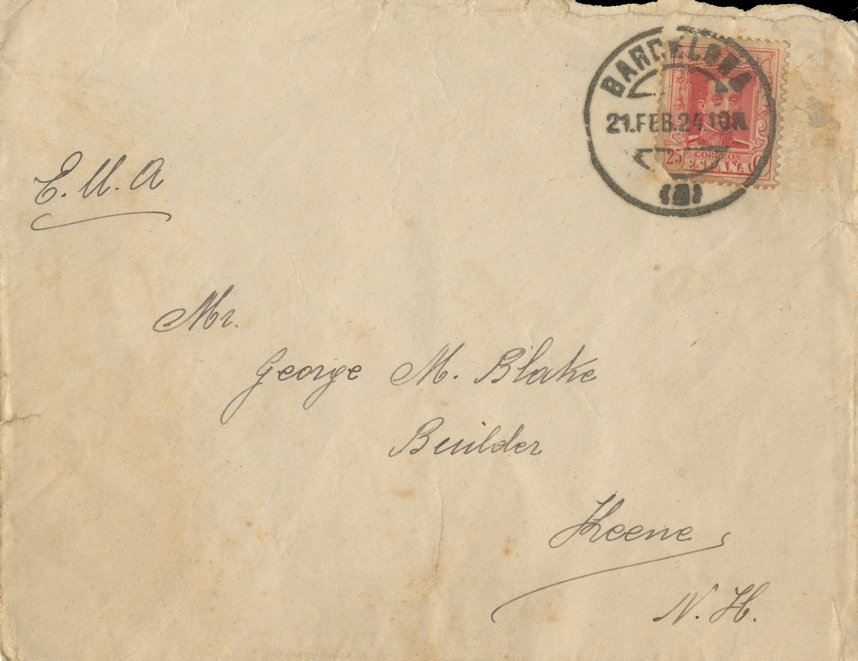 BARCELONA
21.FEB.24 10N
25
CORREOS
ESPAÑA
E.U.A
Mr.
George M. Blake
Builder
Keene,
N. H.